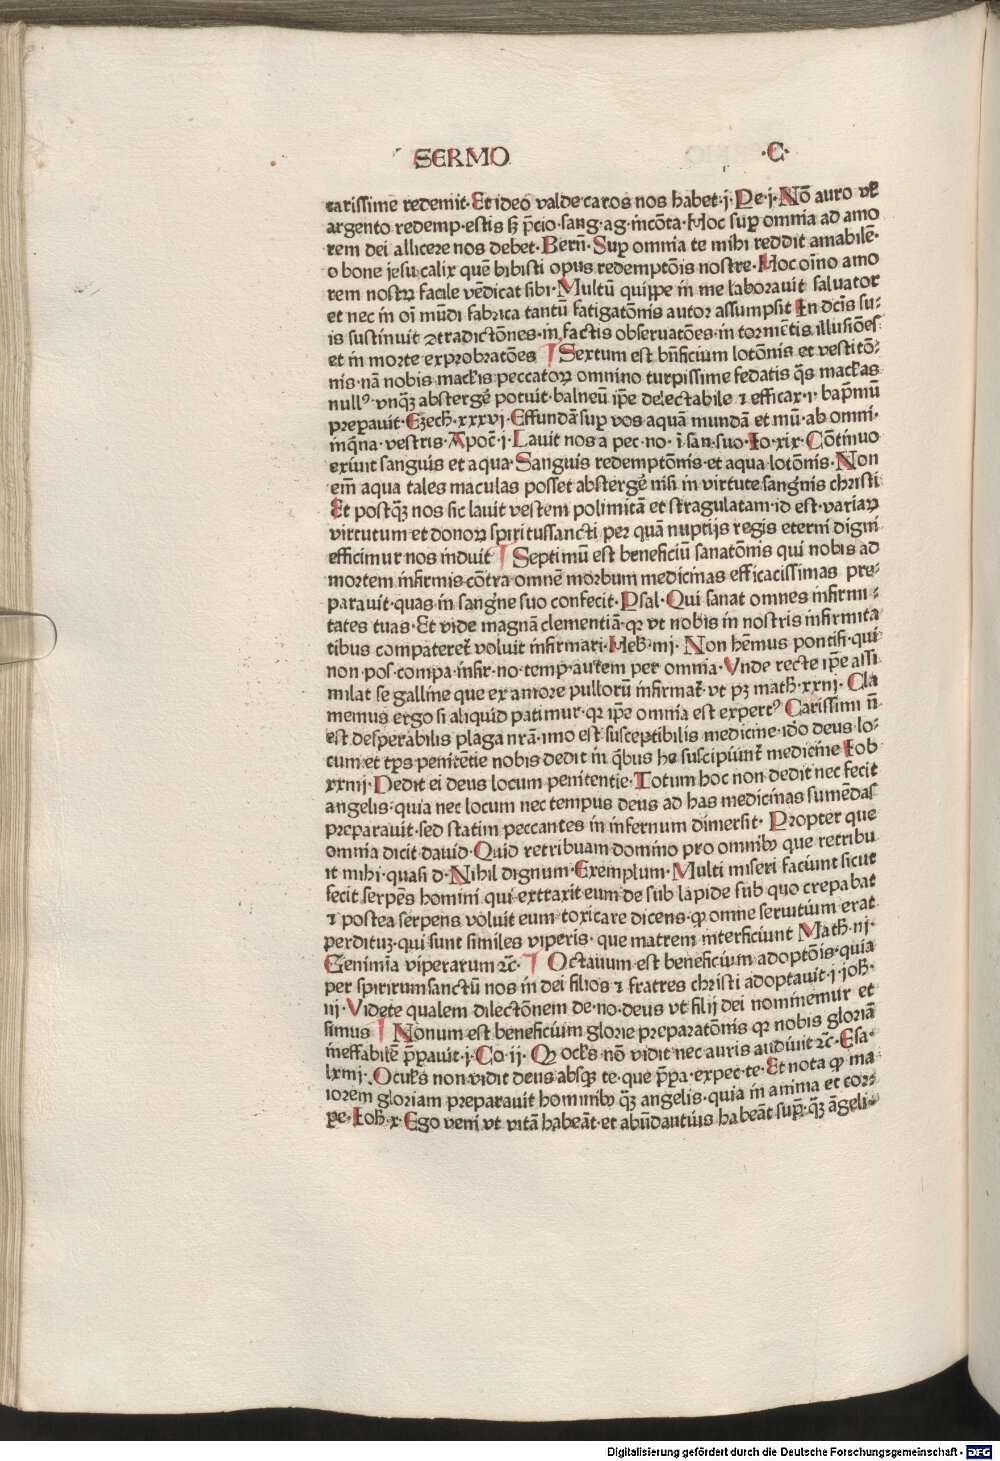 SERMO ·C·
carissime redemit· Et ideo valde caros nos habet· j· Pe· j· Nō auro vł
argento redemp· estis sȝ p̄cio· sang· ag· incōta· Hoc suꝑ omnia ad amo
rem dei allicere nos debet· Berñ· Suꝑ omnia te mihi reddit amabilē·
o bone jesu calix quē bibisti opus redemptōis nostre· Hoc oīno amo
rem nostꝝ facile vēdicat sibi· Multū quippe in me laborauit saluator
et nec in oī mūdi fabrica tantū fatigatōnis autor assumpsit In dcīs su⸗
is sustinuit ꝯtradictōnes· in factis obseruatōes· in tormētis illusiōes
et in morte exprobratōes ¶ Sextum est bn̄ficium lotōnis et vestitō⸗
nis· nā nobis mackis peccatoꝝ omnino turpissime fedatis q̄s mackas
nullꝰ vnqȝ abstergē potuit· balneū ip̄e delectabile ⁊ efficax· i· bap̄mū
preparauit· Eȝech· xxxvj· Effundā suꝑ vos aquā mundā et mū· ab omni·
inq̄na· vestris· Apoc̄· j· Lauit nos a pec· no· ī san· suo· Io· xix· Cōtinuo
exiuit sanguis et aqua· Sanguis redemptōnis· et aqua lotōnis· Non
em̄ aqua tales maculas posset abstergē nisi in virtute sangīnis christi
Et postqȝ nos sic lauit vestem polimitā et stragulatam· id est· variaꝝ
virtutum et donoꝝ spiritussancti per quā nuptijs regis eterni digni
efficimur nos induit ¶ Septimū est beneficiū sanatōnis qui nobis ad
mortem infirmis cōtra omnē morbum medicinas efficacissimas pre⸗
parauit· quas in sangīne suo confecit· Psal· Qui sanat omnes infirmi⸗
tates tuas· Et vide magnā clementiā· qꝛ vt nobis in nostris infirmita
tibus compateret̄ voluit infirmari· Heb̄· iiij· Non hēmus pontifi· qui
non pos· compa· infir· no· temp· autem per omnia· Vnde recte ip̄e assi
milat se galline que ex amore pulloruū infirmat̄· vt pȝ math̄· xxiij· Cla
memus ergo si aliquid patimur· qꝛ ip̄e omnia est expertꝰ Carissimi n̄
est desperabilis plaga nrā· imo est susceptibilis medicine· idō deus lo⸗
cum et tp̄s penitētie nobis dedit in qb̄us hẹ suscipiūnt̄ medicine Iob
xxiiij· Dedit ei deus locum penitentie· Totum hoc non dedit nec fecit
angelis· quia nec locum nec tempus deus ad has medicinas sumēdas
preparauit· sed statim peccantes in infernum dimersit· Propter que
omnia dicit dauid· Quid retribuam domino pro omnibꝰ que retribu
it mihi· quasi d· Nihil dignum· Exemplum· Multi miseri faciunt sicut
fecit serpēs homini qui extraxit eum de sub lapide sub quo crepabat
⁊ postea serpens voluit eum toxicare dicens· ꝙ omne seruitium erat
perdituȝ· qui sunt similes viperis· que matrem interficiunt Math̄· iij·
Genimīa viperarum ⁊c̄· ¶ Octauum est beneficium adoptōis· quia
per spirirumsanctū nos in dei filios ⁊ fratres christi adoptauit· j· ioh̄·
iij· Videte qualem dilectōnem de· no· deus vt filij dei nominemur et
simus ¶ Nonum est beneficium glorie preparatōnis qꝛ nobis gloriā
ineffabilē p̄pauit· j· Co· ij· Qꝛ ock̄s nō vidit nec auris audiuit ⁊c̄· Esa·
lxiiij· Ocuk̄s non vidit deus absqȝ te· que p̄pa· expec· te· Et nota ꝙ ma
iorem gloriam preparauit hominibꝰ qȝ angelis· quia in anima et cor⸗
pe· Ioh̄· x· Ego veni vt vitā habeāt· et abūdantius habeāt sup̄· qȝ āgeli⸗
Digitalisierung gefördert durch die Deutsche Forschungsgemeinschaft - DFG